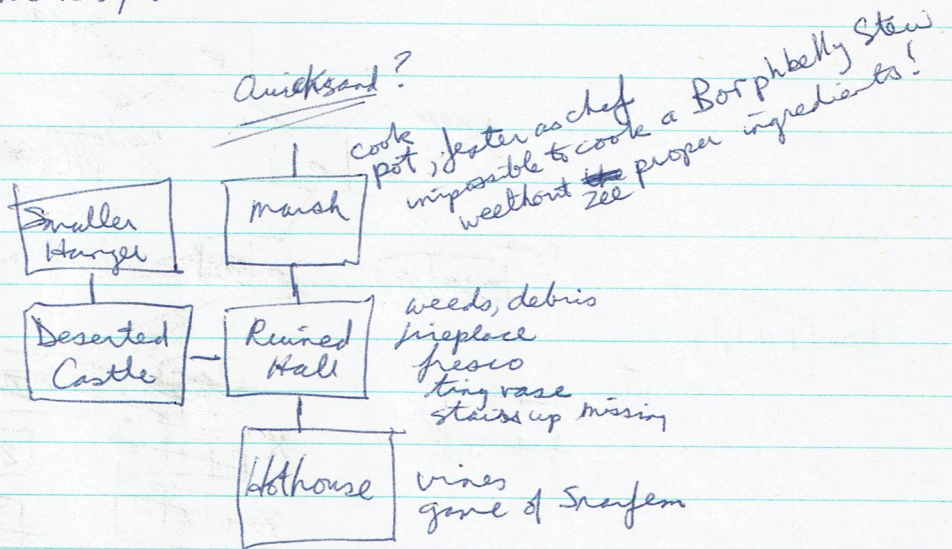 Quicksand?
cook
pot, jester as chef
impossible to cook a Borphbelly Stew
weethout zee proper ingredients!
Smaller
Hanger
Marsh
Deserted
Castle
Ruined
Hall
weeds, debris
fireplace
fresco
tiny vase
stairs up missing
Hothouse
vines
game of Snarfem